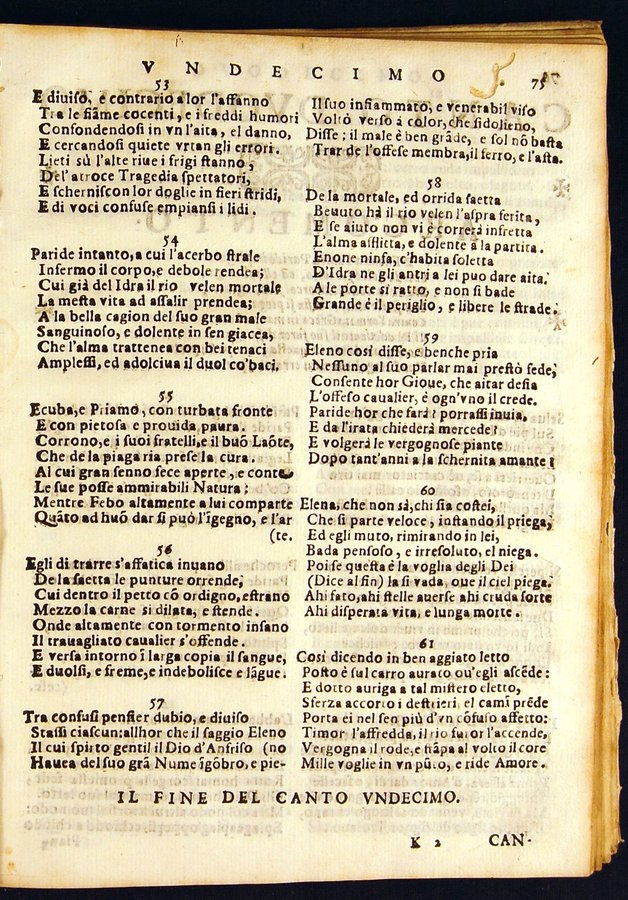 VNDECIMO 75
53
E diuiso, e contrario a lor l'affanno
Tra le fiãme cocenti, e i freddi humori
Confondendosi in vn l'aita, el danno,
E cercandosi quiete vrtan gli errori.
Lieti sù l'alte riue i frigi stanno,
Del'atroce Tragedia spettatori,
E scherniscon lor doglie in fieri stridi,
E di voci confuse empiansi i lidi.
54
Paride intanto, a cui l'acerbo strale
Infermo il corpo, e debole rendea;
Cui già del Idra il rio velen mortale
La mesta vita ad assalir prendea;
A la bella cagion del suo gran male
Sanguinoso, e dolente in sen giacea,
Che l'alma trattenea con bei tenaci
Amplessi, ed adolciua il duol co'baci.
55
Ecuba, e Priamo, con turbata fronte
E con pietosa e prouida paura.
Corrono, e i suoi fratelli, e il buõ Laõte,
Che de la piaga ria prese la cura.
Al cui gran senno fece aperte, e conte
Le sue posse ammirabili Natura;
Mentre Febo altamente a lui comparte
Quãto ad huõ dar si può l'ĩgegno, e l'ar
(te.
56
Egli di trarre s'affatica inuano
De la saetta le punture orrende,
Cui dentro il petto cõ ordigno, estrano
Mezzo la carne si dilata, e stende.
Onde altamente con tormento insano
Il trauagliato caualier s'offende.
E versa intorno ĩ larga copia il sangue,
E duolsi, e freme, e indebolisce e lãgue.
57
Tra confusi pensier dubio, e diuiso
Stassi ciascun: allhor che il saggio Eleno
Il cui spirto gentil il Dio d'Anfriso (no
Hauea del suo grã Nume ĩgõbro, e pie-
Il suo infiammato, e venerabil viso
Voltò verso à color, che si dolieno,
Disse; il male è ben grãde, e sol nõ basta
Trar de l'offese membra, il ferro, e l'asta.
58
De la mortale, ed orrida saetta
Beuuto hà il rio velen l'aspra ferita,
E se aiuto non vi è correrà infretta
L'alma afflitta, e dolente à la partita.
Enone ninfa, c'habita soletta
D'Idra ne gli antri a lei puo dare aita.
A le porte si ratto, e non si bade
Grande è il periglio, e libere le strade.
59
Eleno così disse, e benche pria
Nessuno al suo parlar mai prestò fede,
Consente hor Gioue, che aitar desia
L'offeso caualier, è ogn'vno il crede.
Paride hor che farà? porrassi inuia,
E da l'irata chiederà mercede?
E volgerà le vergognose piante
Dopo tant'anni a la schernita amante?
60
Elena, che non sà, chi sia costei,
Che si parte veloce, instando il priega,
Ed egli muto, rimirando in lei,
Bada pensoso, e irresoluto, el niega.
Poi se questa è la voglia degli Dei
(Dice al fin) la si vada, oue il ciel piega,
Ahi fato, ahi stelle auerse ahi cruda sorte
Ahi disperata vita, e lunga morte.
61
Così dicendo in ben aggiato letto
Posto è sul carro aurato ou'egli ascẽde:
E dotto auriga a tal mistero eletto,
Sferza accorto i destrieri, el camĩ prẽde
Porta ei nel sen più d'vn cõfuso affetto:
Timor l'affredda, il rio furor l'accende,
Vergogna il rode, e trãpa al volto il core
Mille voglie in vn pũto, e ride Amore.
IL FINE DEL CANTO VNDECIMO.
K 2 CAN-